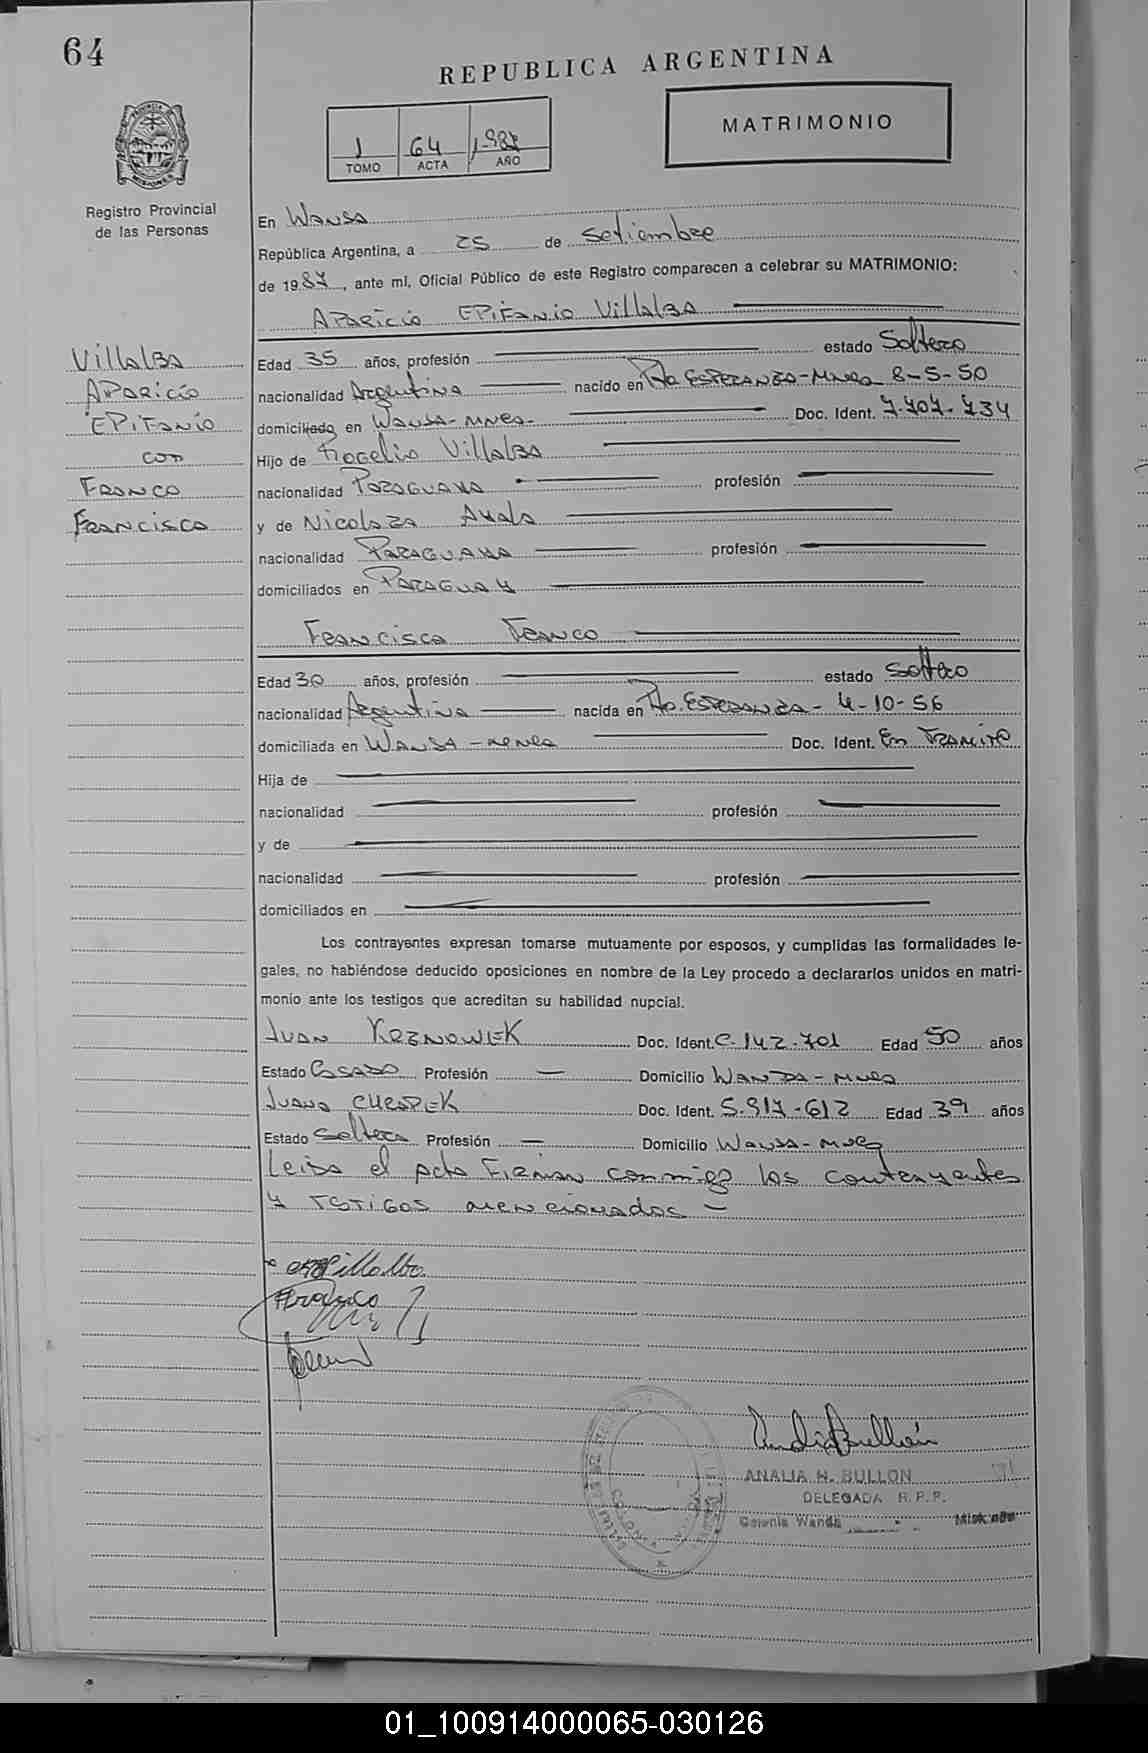 64
REPUBLICA ARGENTINA
MATRIMONIO
1 64 1.987
TOMO ACTA AÑO
Registro Provincial
de las Personas
En Wanda
República Argentina, a 25 de Setiembre
de 1987, ante mí, Oficial Público de este Registro comparecen a celebrar su MATRIMONIO:
Aparicio Epifanio Villalba
Villalba
Aparicio
Epifanio
con
Franco
Francisca
Edad 35 años, profesión estado Soltero
nacionalidad Argentina nacido en Pto. Esperanza-Mnes 8-5-50
domiciliado en Wanda-Mnes- Doc. Ident. 7.707.734
Hijo de Rogelio Villalba
nacionalidad Paraguaya profesión
y de Nicolaza Ayala
nacionalidad Paraguaya profesión
domiciliados en Paraguay
Francisca Franco
Edad 30 años, profesión estado Soltero
nacionalidad Argentina nacida en Pto. Esperanza- 4-10-56
domiciliada en Wanda-Mnes Doc. Ident. En Tramite
Hija de
nacionalidad profesión
y de
nacionalidad profesión
domiciliados en
Los contrayentes expresan tomarse mutuamente por esposos, y cumplidas las formalidades le-
gales, no habiéndose deducido oposiciones en nombre de la Ley procedo a declararlos unidos en matri-
monio ante los testigos que acreditan su habilidad nupcial.
Juan Doc. Ident. C. 142.701 Edad 50 años
Estado Casado Profesión — Domicilio Wanda-Mnes
Juana Doc. Ident. 5.917-612 Edad 39 años
Estado Soltera Profesión — Domicilio Wanda-Mnes
Leida el acta Firman conmigo los contrayentes
y Testigos mencionados -
Franco
ANALIA H. BULLON
DELEGADA R. P. P.
Colonia Wanda Misiones
01_100914000065-030126